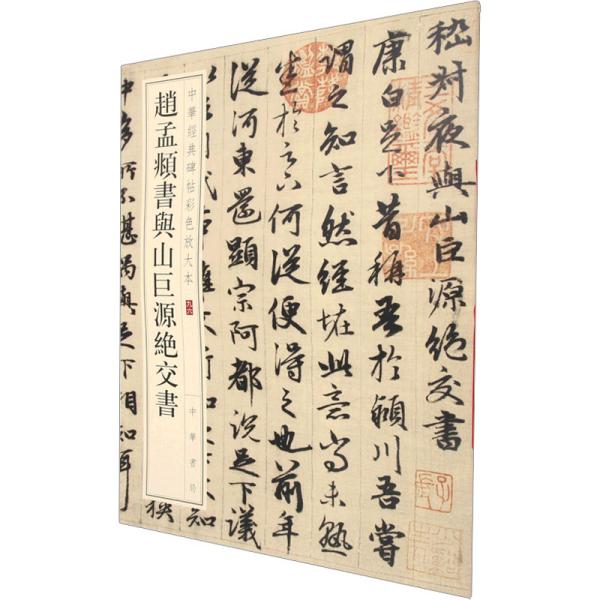 嵇叔夜與山巨源絶交書
康白足下昔稱吾於潁川吾嘗
謂之知言然經怪此意尚未熟
悉於足下何從便得之也前年
從河東還顯宗阿都說足下議
中華經典碑帖彩色放大本 九六
中華書局
趙孟頫書與山巨源絶交書
中多所不堪偶與足下相知耳